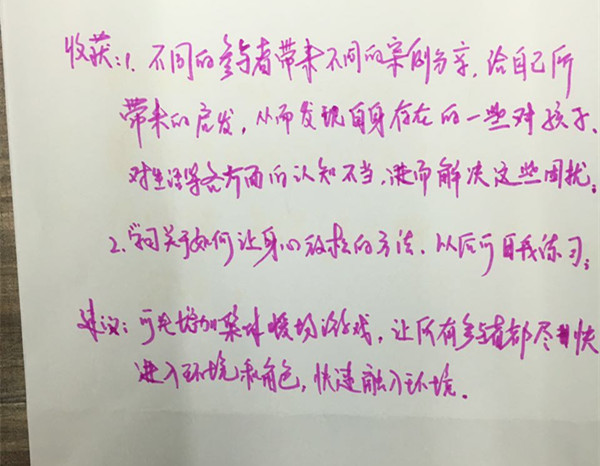 收获:1. 不同的参与者带来不同的案例分享,给自己所
带来的启发,从而发现自身存在的一些对孩子、
对生活等各方面的认知不当,进而解决这些困扰;
2. 学习关于如何让身心放松的方法,以后可自我练习;
建议:可先增加集体暖场游戏,让所有参与者都尽快
进入环境和角色,快速融入环境.